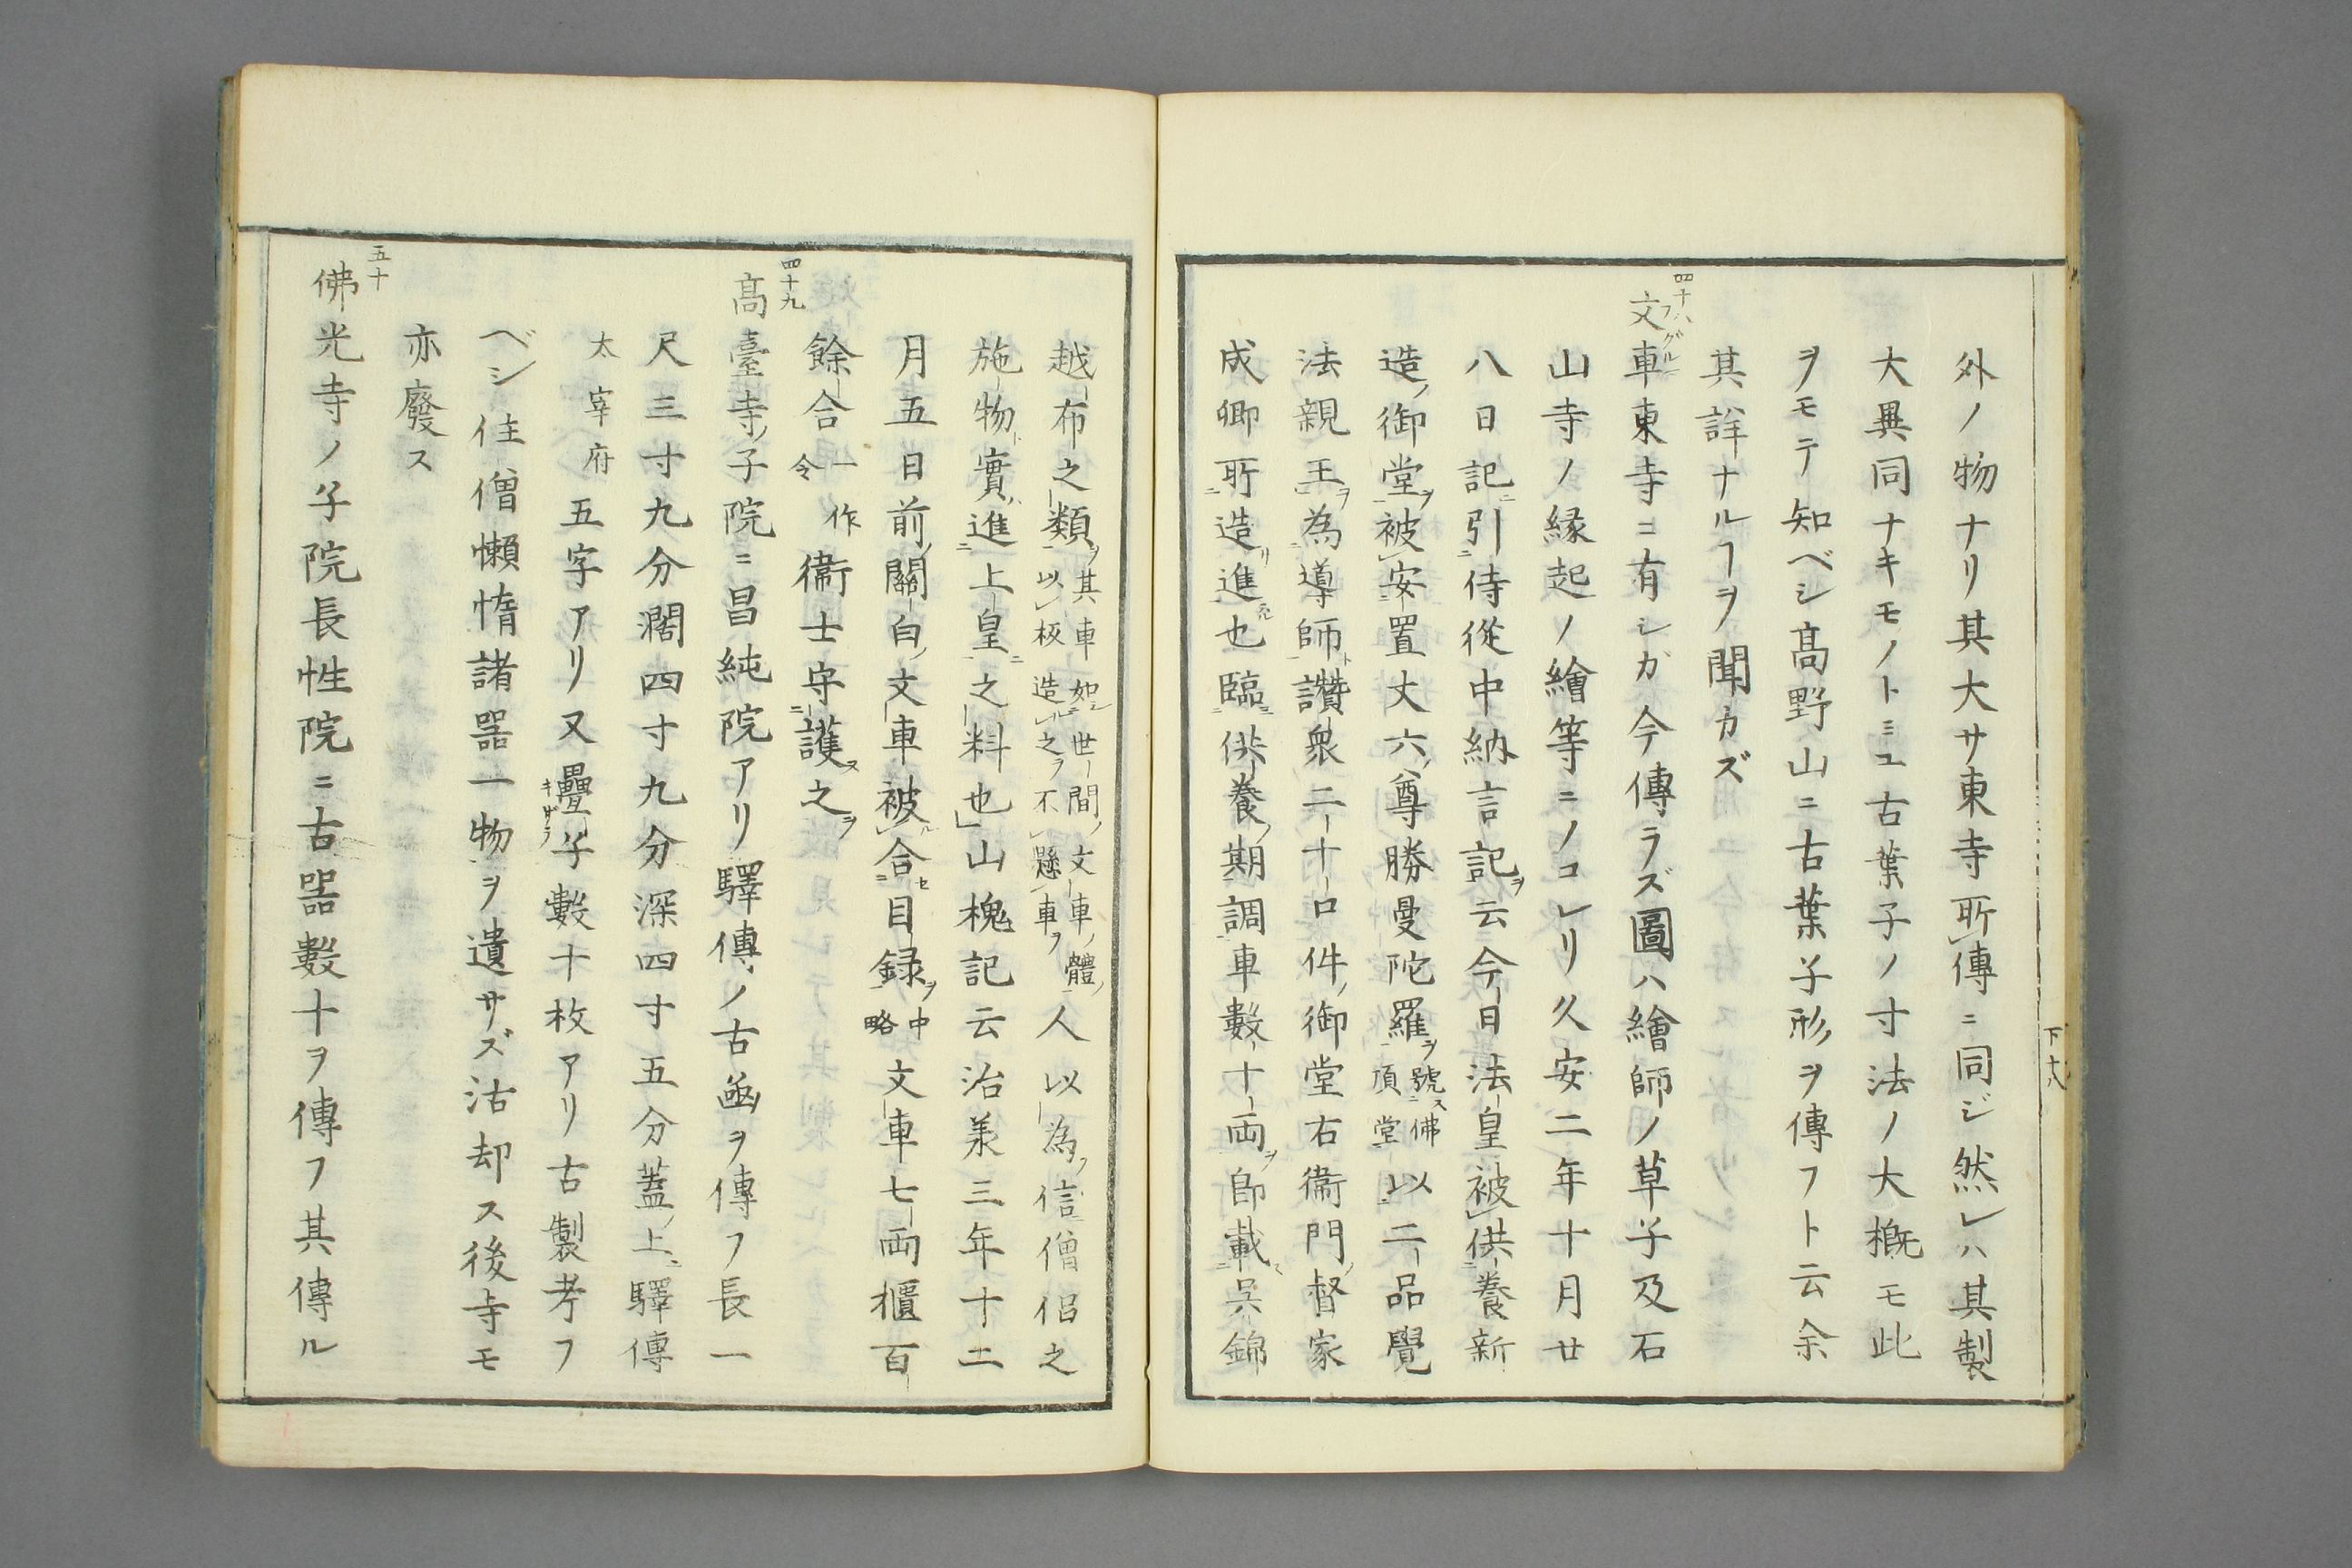 外ノ物ナリ其大サ東寺所傳ニ同ジ然レハ其製
大異同ナキモノトミユ古葉子ノ寸法ノ大概モ此
ヲモテ知ベシ高野山ニ古葉子形ヲ傳フト云余
其詳ナルヿヲ聞カズ
四十八
文車東寺ニ有シガ今傳ラズ圖ハ繪師ノ草子及石
山寺ノ縁起ノ繪等ニノコレリ久安二年十月廿
八日記引侍從中納言記云今日法皇被供養新
造御堂被安置丈六尊勝曼陀羅號佛頂堂以二品覺
法親王為導師讚衆二十口件御堂右衞門督家
成卿所造進也臨供養期調車數十両即載呉錦
下十八
越布之類其車如世間文車體以板造之不懸車人以為信僧侶之
施物實進上皇之料也山槐記云治羕三年十二
月五日前關白文車被合目録中略文車七両櫃百
餘合一作令衞士守護之
四十九
高臺寺子院ニ昌純院アリ驛傳ノ古凾ヲ傳フ長一
尺三寸九分濶四寸九分深四寸五分蓋上驛傳
太宰府五字アリ又疊子數十枚アリ古製考フ
ベシ住僧懶惰諸噐一物ヲ遺サズ沽却ス後寺モ
亦廢ス
五十
佛光寺ノ子院長性院ニ古噐數十ヲ傳フ其傳ル